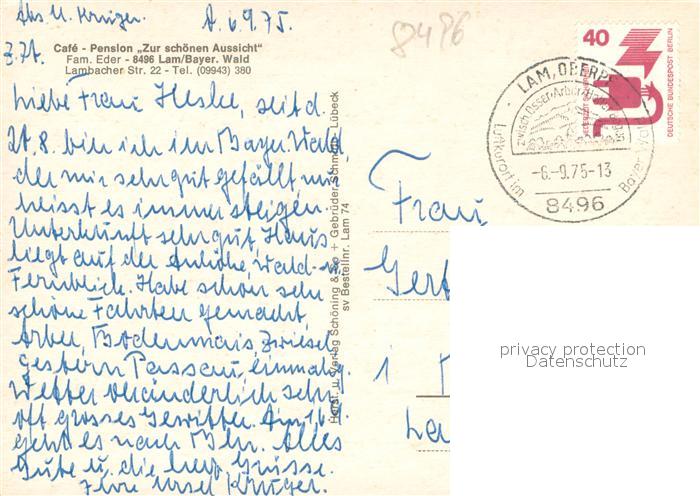 Abs U. Krüger.
d. 6.9.75.
8496
z.Zt.
Café - Pension „Zur schönen Aussicht“
Fam. Eder - 8496 Lam/Bayer. Wald
Lambacher Str. 22 - Tel. (09943) 380
Liebe Frau Heske, seit d.
27.8. bin ich im Bayer. Wald
der mir sehr gut gefällt nur
heisst es immer steigen.
Unterkunft sehr gut, Haus
liegt auf der Anhöhe, Wald u.
Fernblick. Habe schon sehr
schöne Fahrten gemacht,
Arber, Bodenmais, Zwiesel
gestern Passau, einmalig.
Wetter veränderlich sehr
oft grosses Gewitter. Am
geht es nach Bln. Alles
Gute u. die herz. Grüsse.
Ihre Ursel Krüger.
Horst u. Verlag Schöning & Co + Gebrüder Schmidt, Lübeck
sv Bestellnr. Lam 74
40
DEUTSCHE BUNDESPOST BERLIN
LAM, OBERPF
zwisch. Osser-Arber
-6.-9.75-13
Luftkurort im Bayer. Wald
8496
Frau
Gert
1
La
privacy protection
Datenschutz